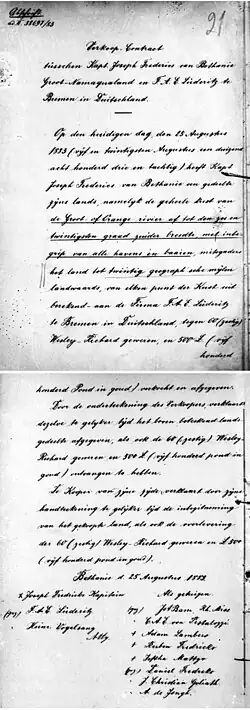 Abschrift
21
Verkoop-Contract
tusschen Kapt. Joseph Frederics van Bethanie
Groot-Namaqualand en F. A. E. Lüderitz te
Bremen in Duitschland.
Op den heidigen dag, den 25 Augustus
1883 (vijf en twintigsten Augustus een duizend
acht honderd drie en tachtig) heeft Kapt
Joseph Frederics van Bethanie een gedeelte
zijns lands, namelijk de geheele kust van
de Groot of Orange rivier af tot den zes en
twintigsten graad zuider breedte, met inbe-
grip van alle havens en baaien, mitsgaders
het land tot twintig geograph'sche mijlen
landwaards, van elken punt der Kust uit
berekend aan de Firma F. A. E. Lüderitz
te Bremen in Duitschland, tegen 60 (zestig)
Wesley-Richard geweren, en 500 £ (vijf
honderd
honderd Pond in goud) verkocht en afgegeven.
Door de onderteekening des Verkoopers, verklaart
dezelve te gelijker tijd het boven betrekend lands
gedeelte afgegeven, als ook de 60 (zestig) Wesley
Richard geweren en 500 £ (vijf honderd pond in
goud) ontvangen te hebben.
Te Kooper van zijne zijde verklaart door zijne
handteekening te gelijker tijd de inbezitneming
van het gekocht land, als ook de overlevering
der 60 (zestig) Wesley Richard geweren en £ 500
(vijf honderd pond in goud).
Bethanie d. 25 Augustus 1883
x Joseph Fredericks Kapitein
Als getuigen.
(gez) F. A. E. Lüderitz
(gez) Joh. Bam Rh. Miss
Heinr. Vogelsang
C. A. E. von Pestalozzi
+ Adam Lambers
+ Ruben Fredericks
(gez) Daniel Fredericks
J. Christian Goliath
A. de Jongh.